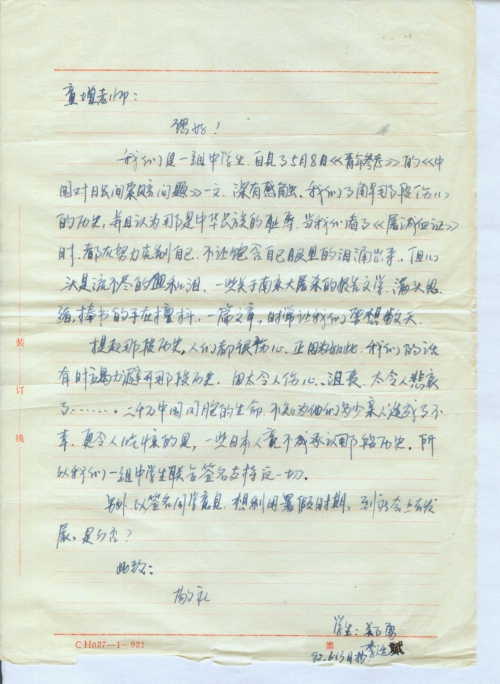 童增老师：
您好！
我们是一组中学生，自看了5月8日《《青年参考》》的《《中
国对日民间索赔问题》》一文，深有感触。我们了解那段伤心
的历史，并且认为那是中华民族的耻辱。当我们看了《《屠城血证》》
时，都在努力克制自己，不让饱含自己眼里的泪涌出来，但心
头是流不尽的血和泪，一些关于南京大屠杀的报告文学，
捧书的手在擅抖，一篇文章，时常让我们想数天。
提起那段历史，人们都很伤心，正因为如此，我们的话
有时竭力避开那段历史，因太令人伤心、沮丧、太令人悲哀
了……。二千万中国同胞的生命，不知为他们多少亲人造成了不
幸，更令人吃惊的是，一些日本人竟不承认那段历史。所
以我们一组中学生联合签名支持这一切。
另外，以签名同学意见，想利用暑假时期，到社会上去发
展，是与否？
此致：
敬礼
学生：
装 订 线
CH027—1—921
第